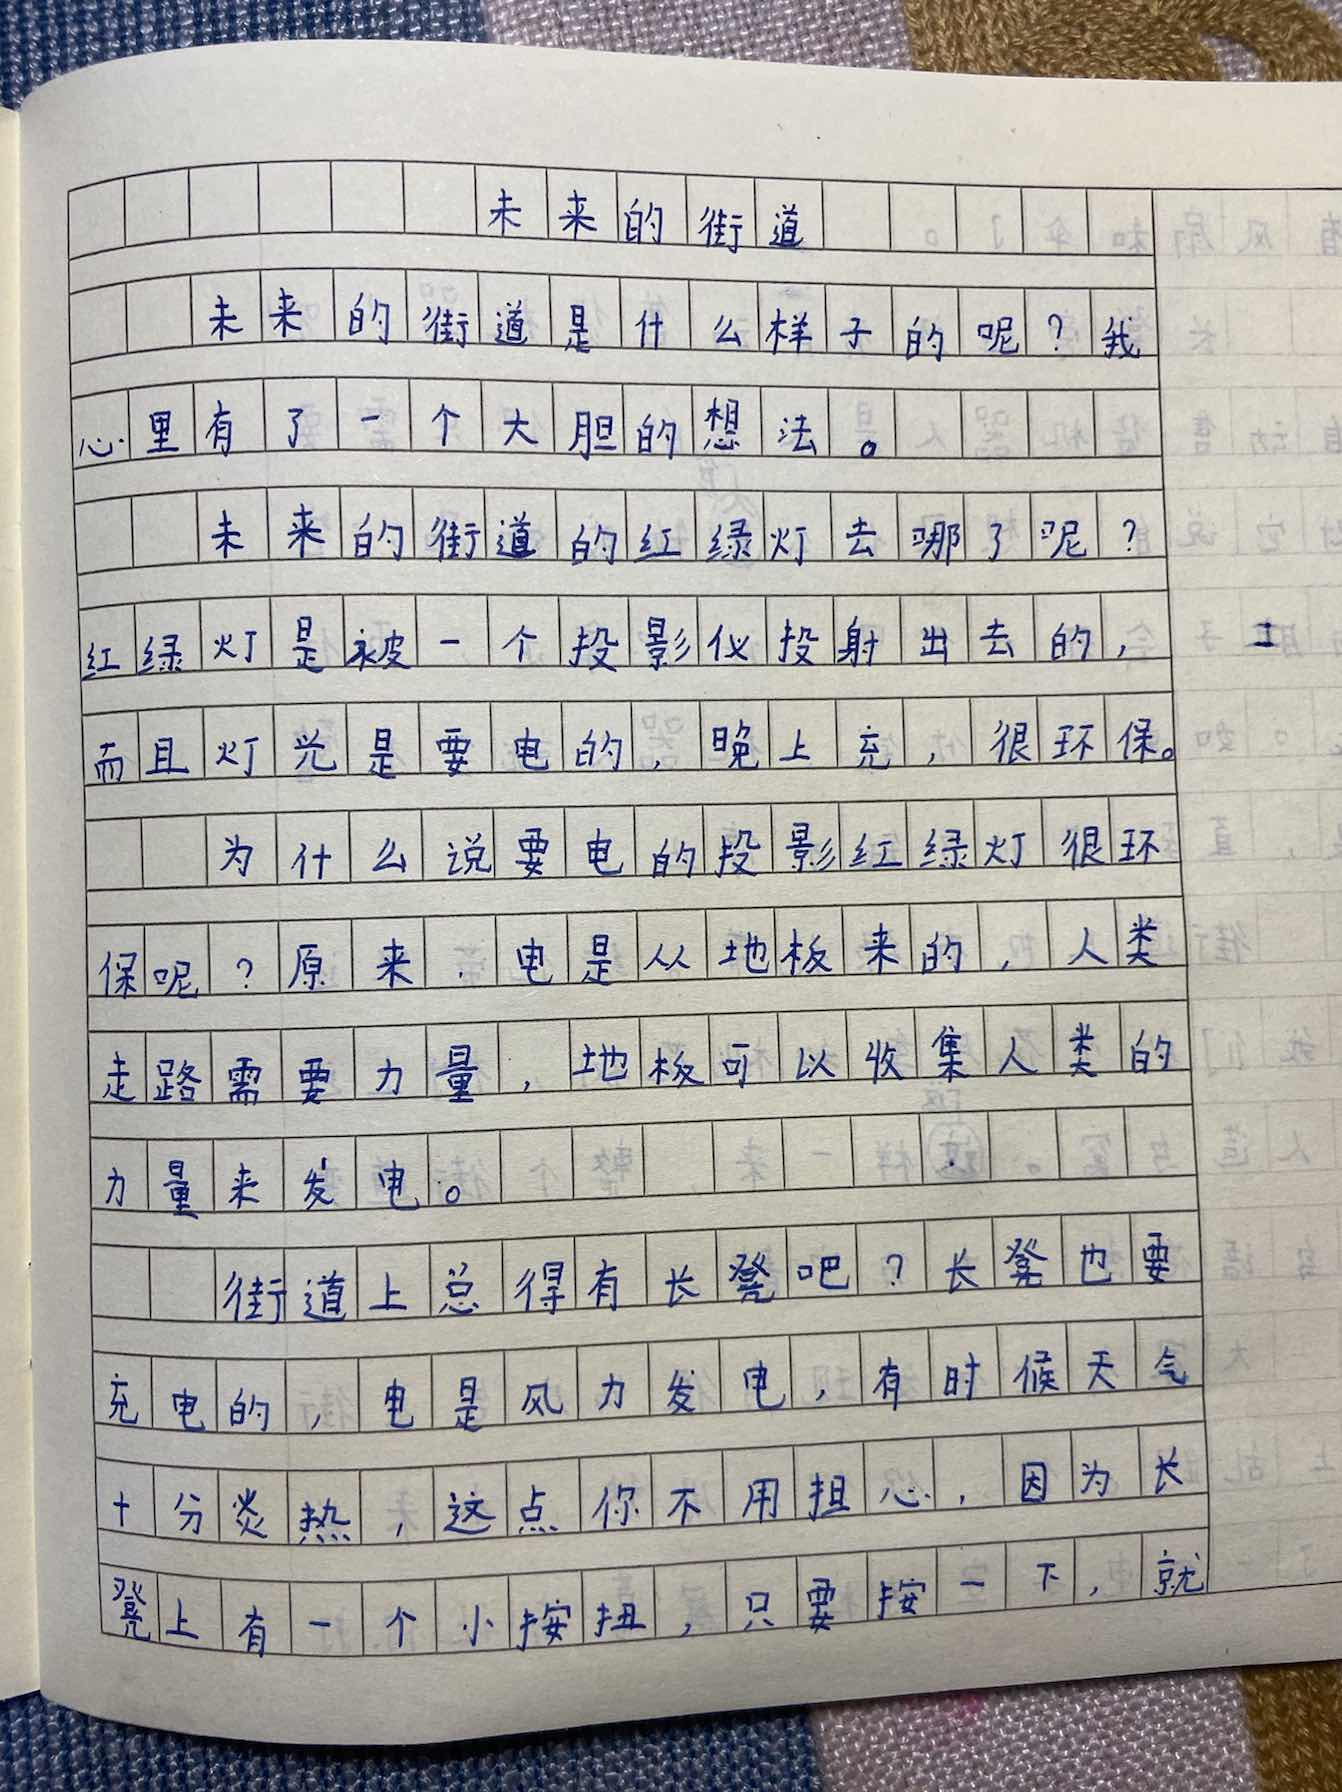 未来的街道
未来的街道是什么样子的呢?我
心里有了一个大胆的想法。
未来的街道的红绿灯去哪了呢?
红绿灯是被一个投影仪投射出去的,
而且灯光是要电的,晚上充,很环保。
为什么说要电的投影红绿灯很环
保呢?原来,电是从地板来的,人类
走路需要力量,地板可以收集人类的
力量来发电。
街道上总得有长凳吧?长凳也要
充电的,电是风力发电,有时候天气
十分炎热,这点你不用担心,因为长
凳上有一个小按扭,只要按一下,就